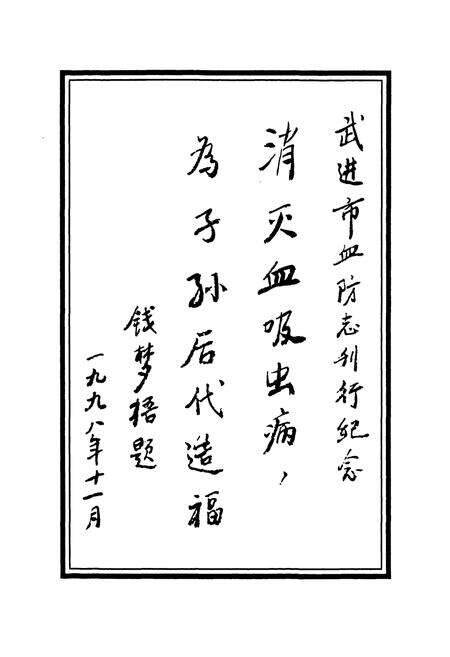 武进市血防志刊行纪念
消灭血吸虫病，
為子孙后代造福
钱梦梧题
一九九八年十一月